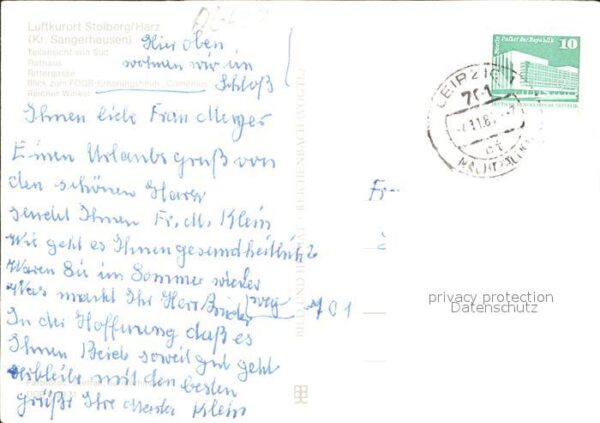 Luftkurort Stolberg/Harz
(Kr. Sangerhausen)
Teilansicht von Süd
Rathaus
Rittergasse
Blick zum FDGB-Erholungsheim "Comenius"
Reicher Winkel
Hier oben
wohnen wir im
Schloß
Ihnen liebe Frau Meyer
Einen Urlaubsgruß von
den schönen Harz
sendet Ihnen Fr. M. Klein
Wie geht es Ihnen gesundheitlich?
Waren Sie im Sommer wieder
weg
Was macht Ihr Herr Bruder
In der Hoffnung daß es
Ihnen Beide soweit gut geht
verbleibe mit den besten
grüße Ihre Klein
BILD UND HEIMAT REICHENBACH (VOGTL)
Palast der Republik
10
LEIPZIG
701
Fr
701
privacy protection
Datenschutz